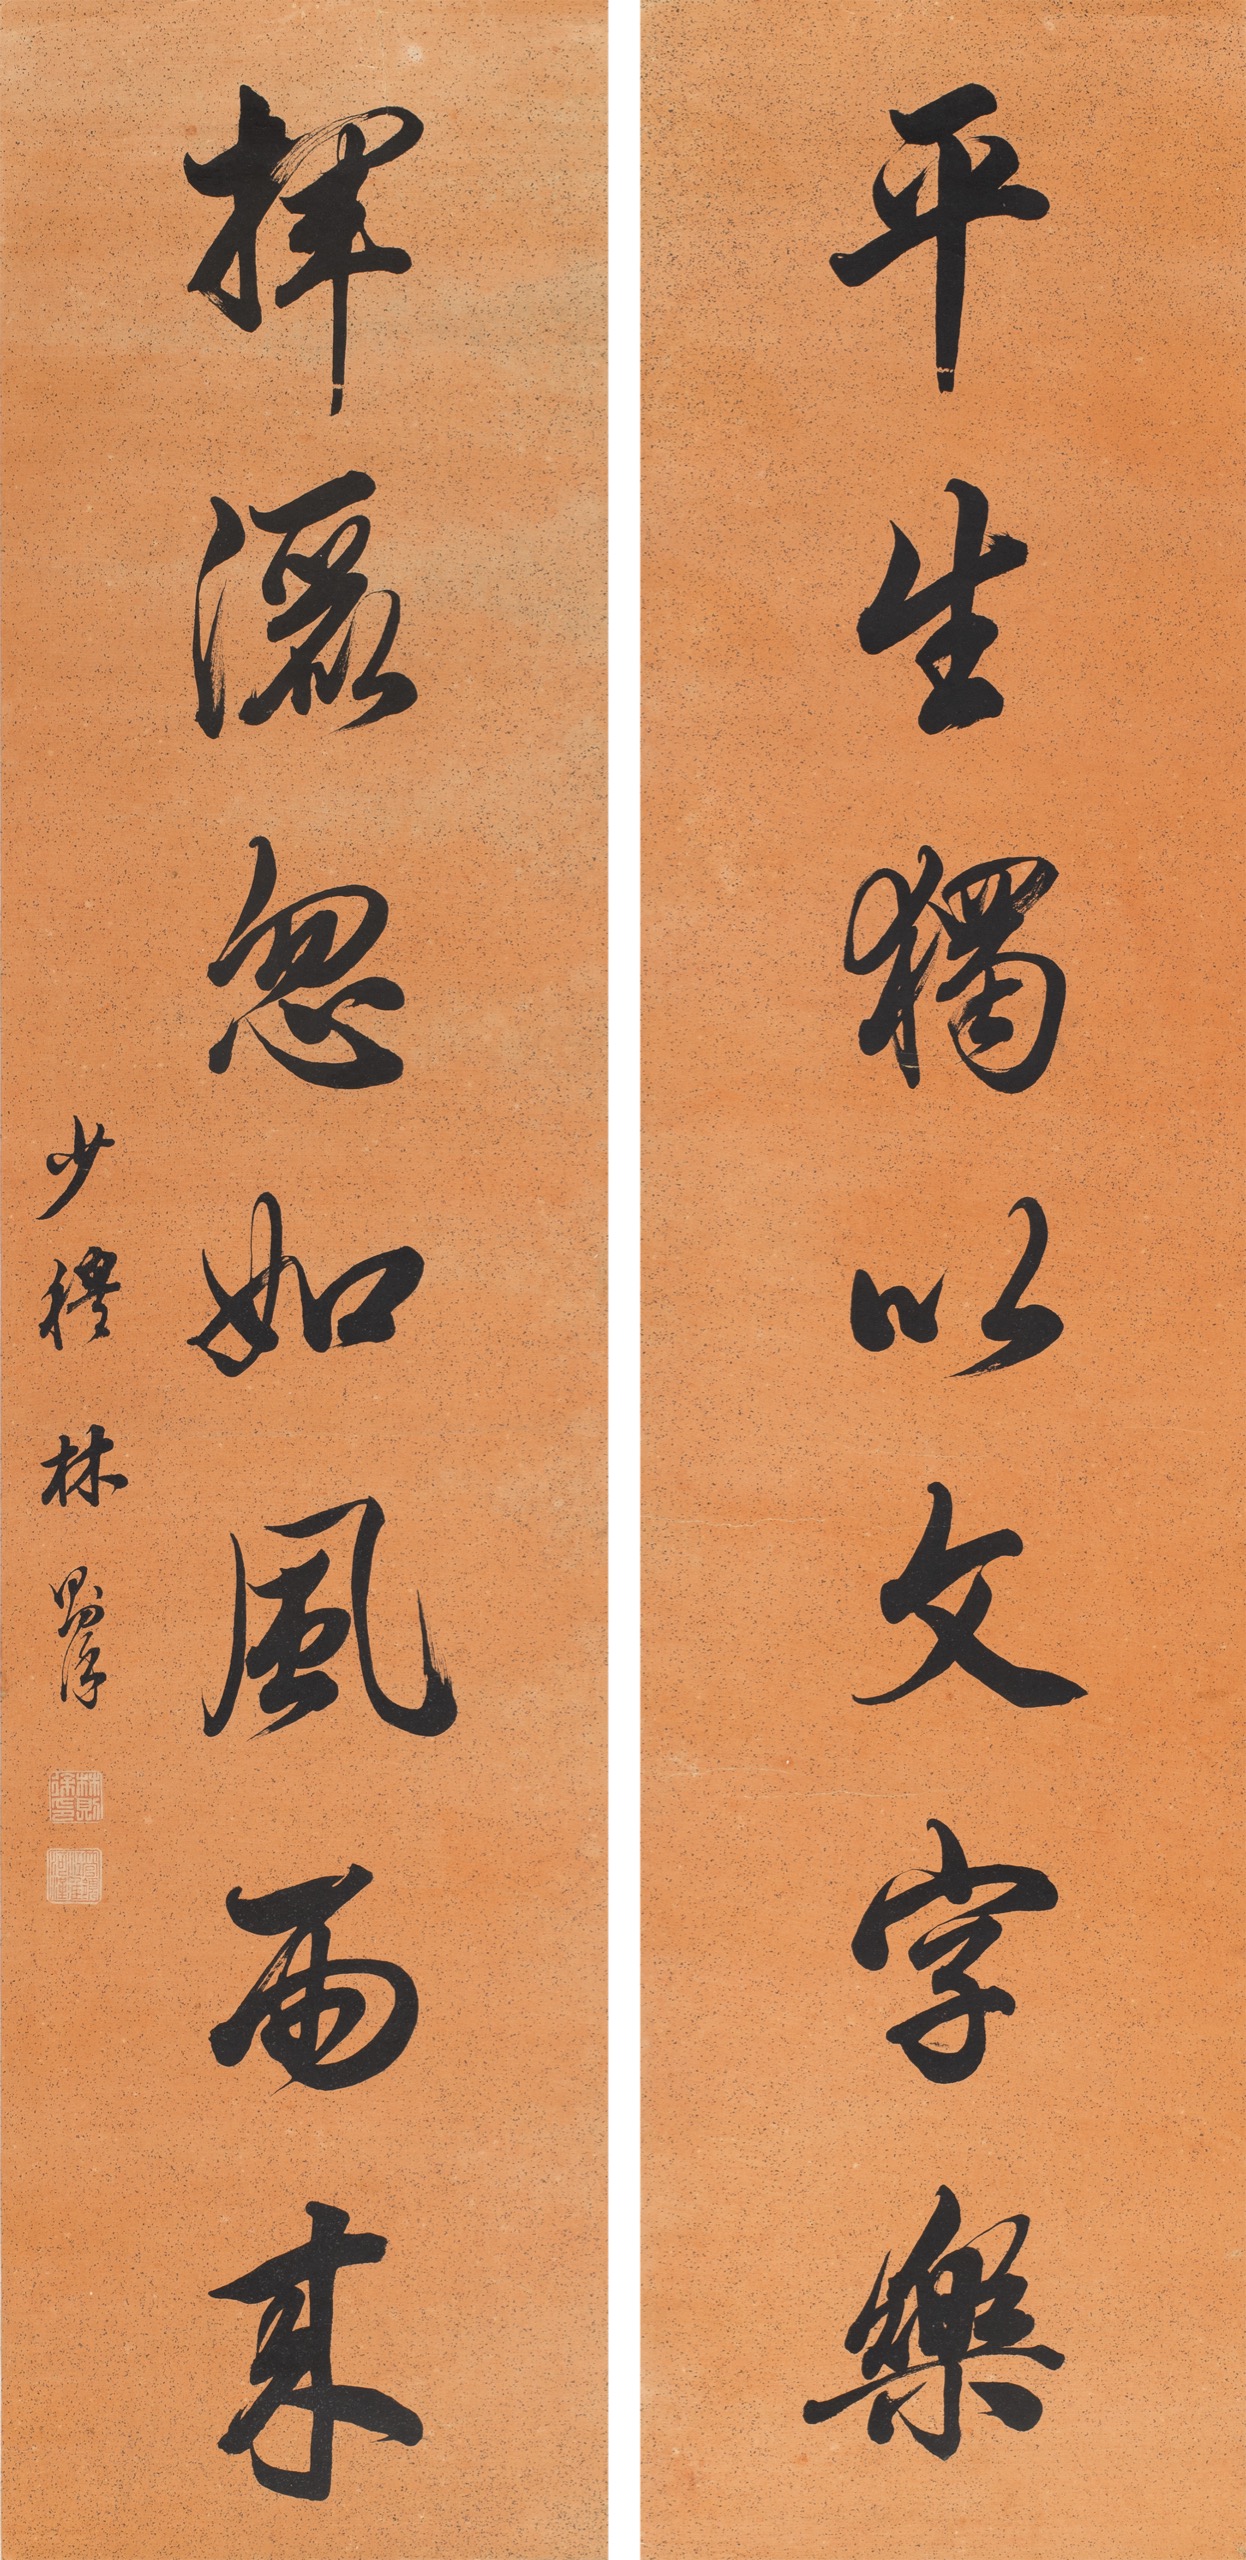 平生獨以文字樂
揮灑忽如風雨來
少穆林則徐
林則徐印